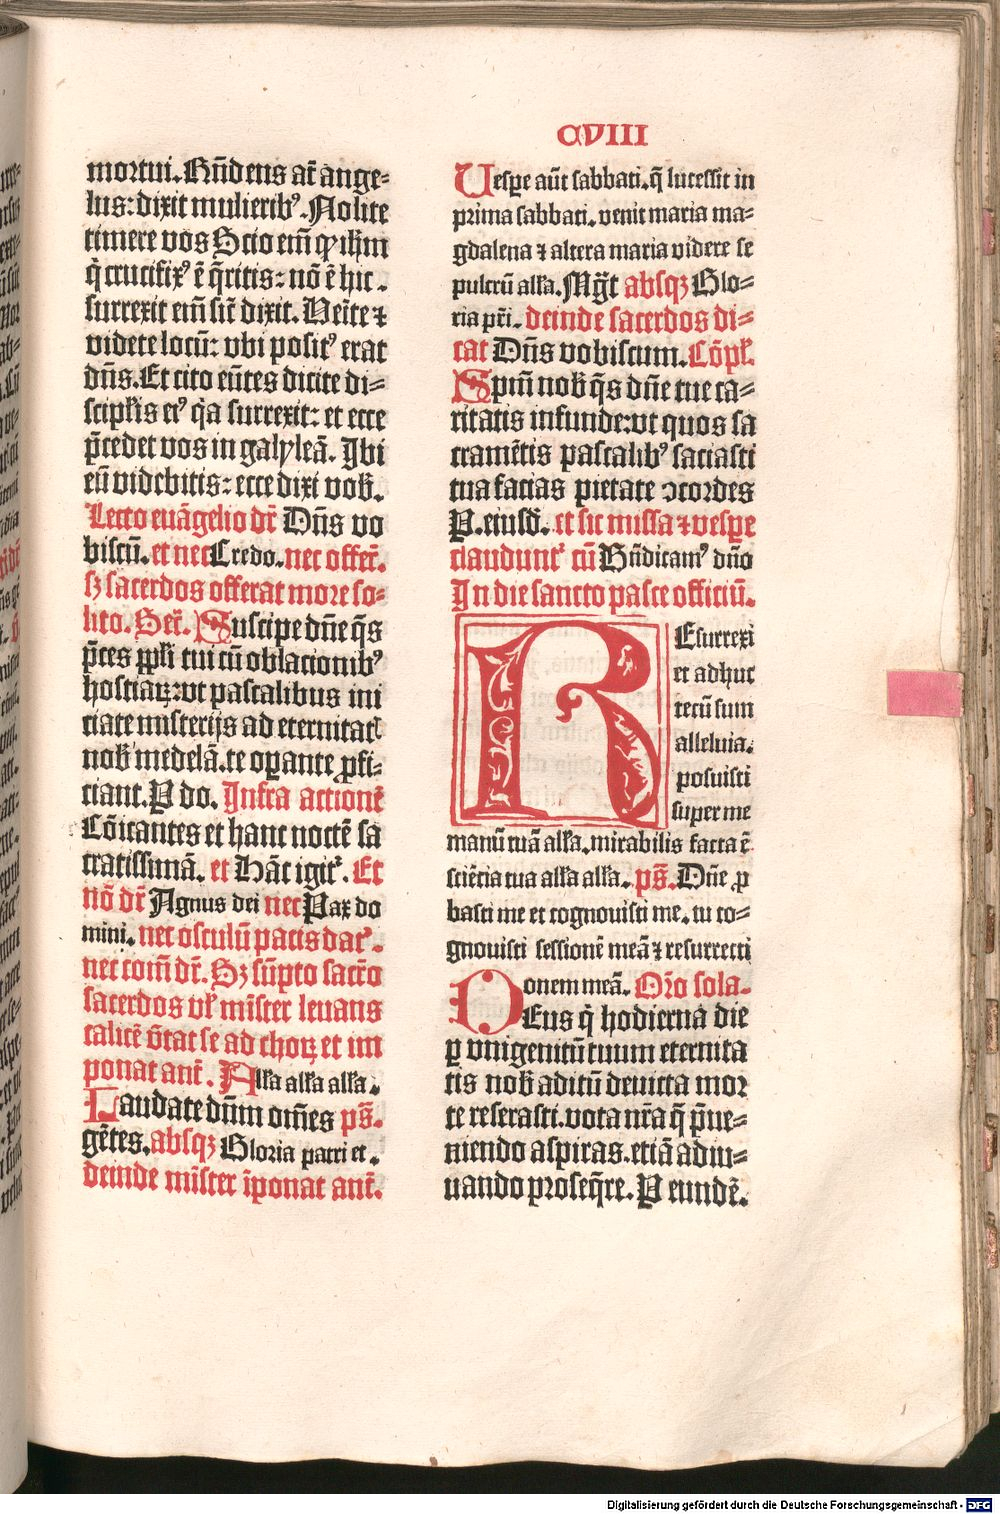 CVIII
mortui. Rñdens aũt ange⸗
lus: dixit mulieribꝰ. Nolite
timere vos Scio em̃ ꝙ ihm̃
q̃ crucifixꝰ ẽ q̃ritis: nõ ẽ hic.
surrexit em̃ sic̃ dixit. Venite ⁊
videte locũ: vbi positꝰ erat
dñs. Et cito eũtes dicite di⸗
scipl̃is eiꝰ q̃a surrexit: et ecce
p̃cedet vos in galyleã. Ibi
eũ videbitis: ecce dixi vob̃.
Lecto euãgelio dr̃ Dñs vo
biscũ. et nec Credo. nec offer̃.
sꝫ sacerdos offerat more so⸗
lito. Secr̃. Suscipe dñe q̃s
p̃ces ppl̃i tui cũ oblacionibꝰ
hostiaꝝ: vt pascalibus ini
ciate misterijs ad eternitat̃
nob̃ medelã. te oꝑante ꝓfi⸗
ciant. P do. Infra actionẽ
Cõicantes et hanc noctẽ sa
cratissimã. et Hãc igit̃. Et
nõ dr̃ Agnus dei nec Pax do
mini. nec osculũ pacis dat̃.
nec com̃ dr̃. Sꝫ sũpto sacr̃o
sacerdos vl̃ mĩster leuans
calicẽ ṽtat se ad choꝝ et im
ponat ant̃. All̃a all̃a all̃a.
Laudate dñm om̃es ps̃.
gẽtes. absqꝫ Gloria patri et.
deinde mĩster ĩponat ant̃.
Vespe aũt sabbati. q̃ lucessit in
prima sabbati. venit maria ma⸗
gdalena ⁊ altera maria videre se
pulcrũ all̃a. Mg̃t absqꝫ Glo⸗
ria pr̃i. deinde sacerdos di⸗
cat Dñs vobiscum. Cõpl̃.
Spm̃ nob̃ q̃s dñe tue ca⸗
ritatis infunde: vt quos sa
cramẽtis pascalibꝰ saciasti
tua facias pietate ↄcordes
P. eiusd̃. et sic missa ⁊ vespe
claudunt̃ cũ Bñdicamꝰ dño
In die sancto pasce officiũ.
REsurrexi
et adhuc
tecũ sum
alleluia.
posuisti
super me
manũ tuã all̃a. mirabilis facta ẽ
sciẽcia tua all̃a all̃a. ps̃. Dñe ꝓ
basti me et cognouisti me. tu co⸗
gnouisti sessionẽ meã ⁊ resurrecti
onem meã. Or̃o sola.
DEus q̃ hodierna die
ꝑ vnigenitũ tuum eternita
tis nob̃ aditũ deuicta mor
te reserasti. vota nr̃a q̃ p̃ue⸗
niendo aspiras. etiã adiu⸗
uando proseq̃re. P eundẽ.
Digitalisierung gefördert durch die Deutsche Forschungsgemeinschaft - DFG